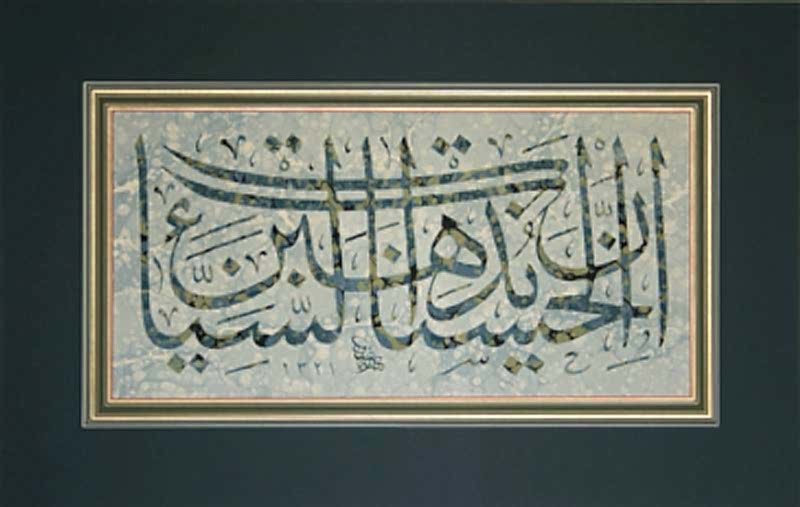 إن الحسنات يذهبن السيئات
١٣٢١